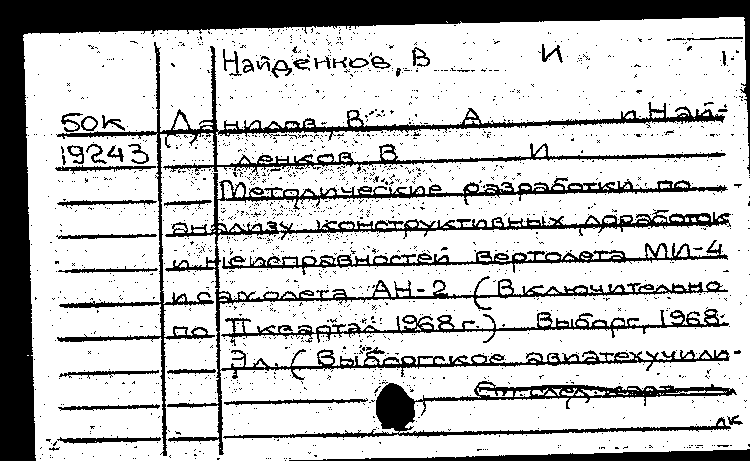 Найденков, В И
50К Данилов, В А и Най-
19243 денков, В И
Методические разработки по
анализу конструктивных доработок
и неисправностей вертолета МИ-4
и самолета АН-2 (Включительно
по II квартал 1968 г.). Выборг, 1968.
л. (Выборгское авиатехучили-
См. след. карт
лк